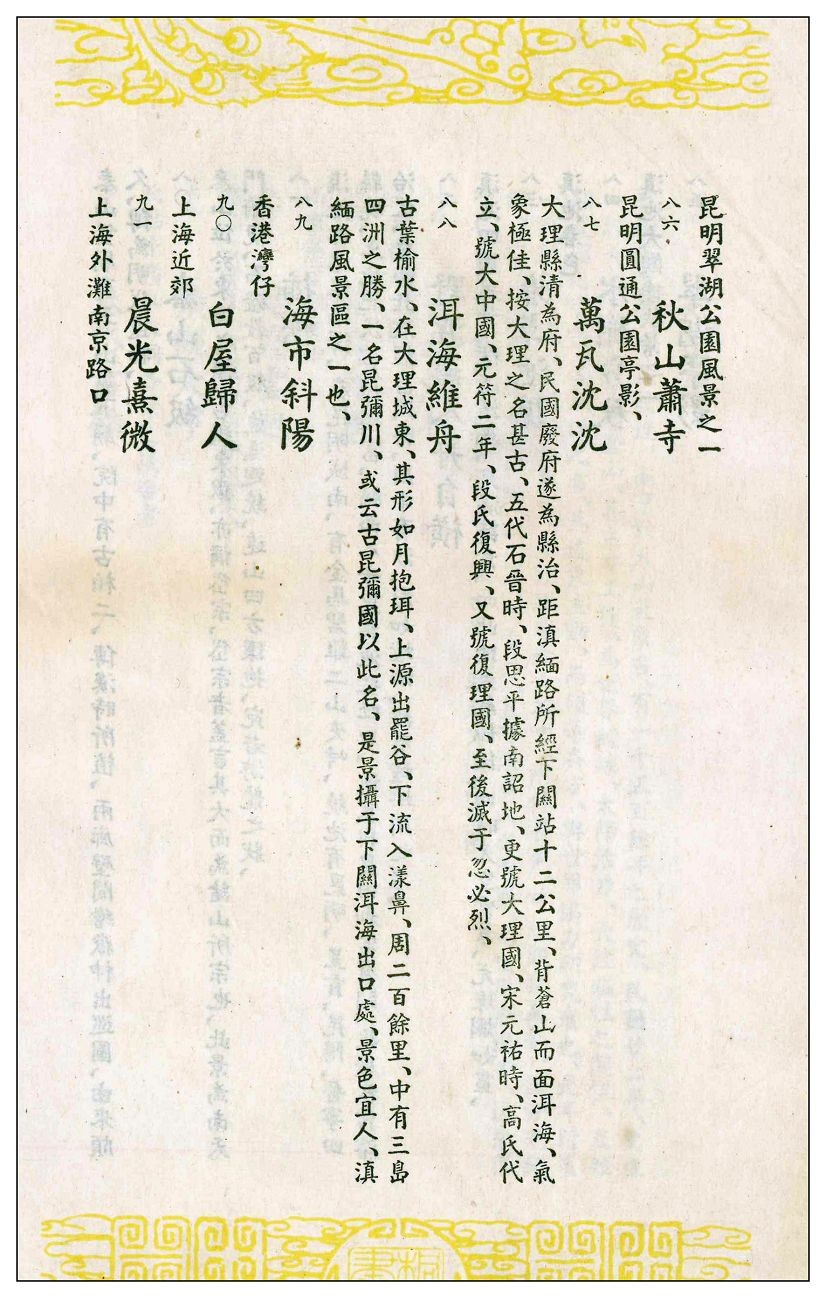 昆明翠湖公園風景之一
八六 秋山蕭寺
昆明圓通公園亭影、
八七 萬瓦沈沈
大理縣清為府、民國廢府遂為縣治、距滇緬路所經下關站十二公里、背蒼山而面洱海、氣
象極佳、按大理之名甚古、五代石晉時、段思平據南詔地、更號大理國、宋元祐時、高氏代
立、號大中國、元符二年、段氏復興、又號復理國、至後滅于忽必烈、
八八 洱海維舟
古葉榆水、在大理城東、其形如月抱珥、上源出罷谷、下流入漾鼻、周二百餘里、中有三島
四洲之勝、一名昆彌川、或云古昆彌國以此名、是景攝于下關洱海出口處、景色宜人、滇
緬路風景區之一也、
八九 海市斜陽
香港灣仔
九〇 白屋歸人
上海近郊
九一 晨光熹微
上海外灘南京路口